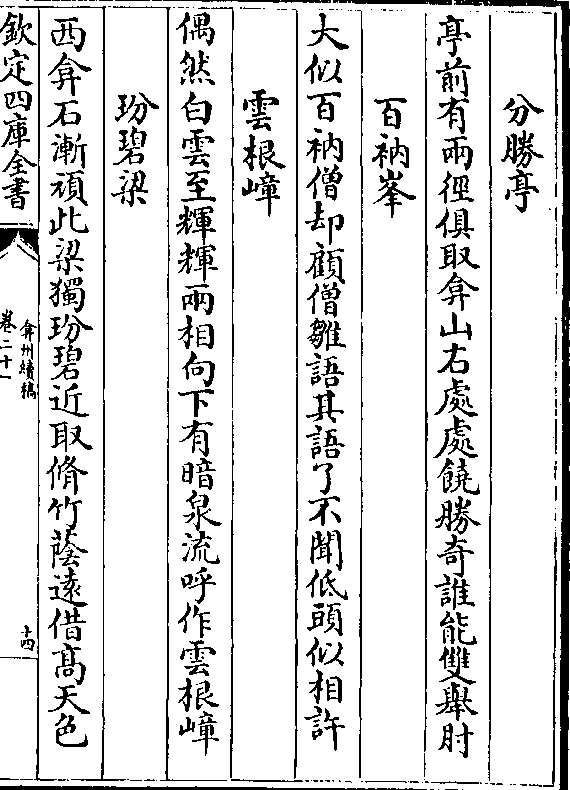 分勝亭
亭前有兩徑俱取弇山右處處饒勝奇誰能雙舉肘
百衲峯
大似百衲僧却顧僧雛語其語了不聞低頭似相許
雲根嶂
偶然白雲至輝輝兩相向下有暗泉流呼作雲根嶂
玢碧梁
西弇石漸頑此梁獨玢碧近取脩竹蔭遠借髙天色
欽定四庫全書
弇州續稿
卷二十一
十四